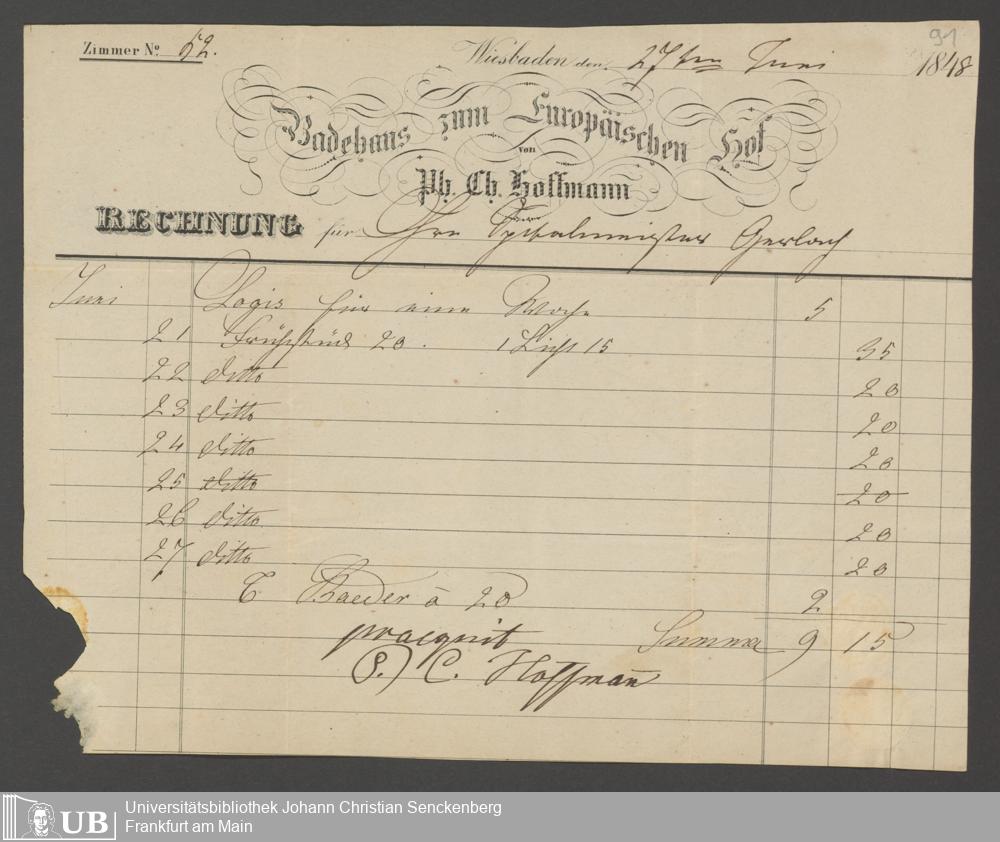 91
Zimmer No. 52.
Wiesbaden den 27ten Juni 1848
Badehaus zum Europäischen Hof
von
Ph. Ch. Hoffmann
RECHNUNG für Herrn Spitalmeister Gerlach
Juni Logis für eine Woche 5
21 Frühstück 20. 1 Licht 15 35
22 ditto 20
23 ditto 20
24 ditto 20
25 ditto 20
26 ditto 20
27 ditto 20
6 Baeder à 20 2
Summa 9 15
P. C. Hoffmann
UB
Universitätsbibliothek Johann Christian Senckenberg
Frankfurt am Main